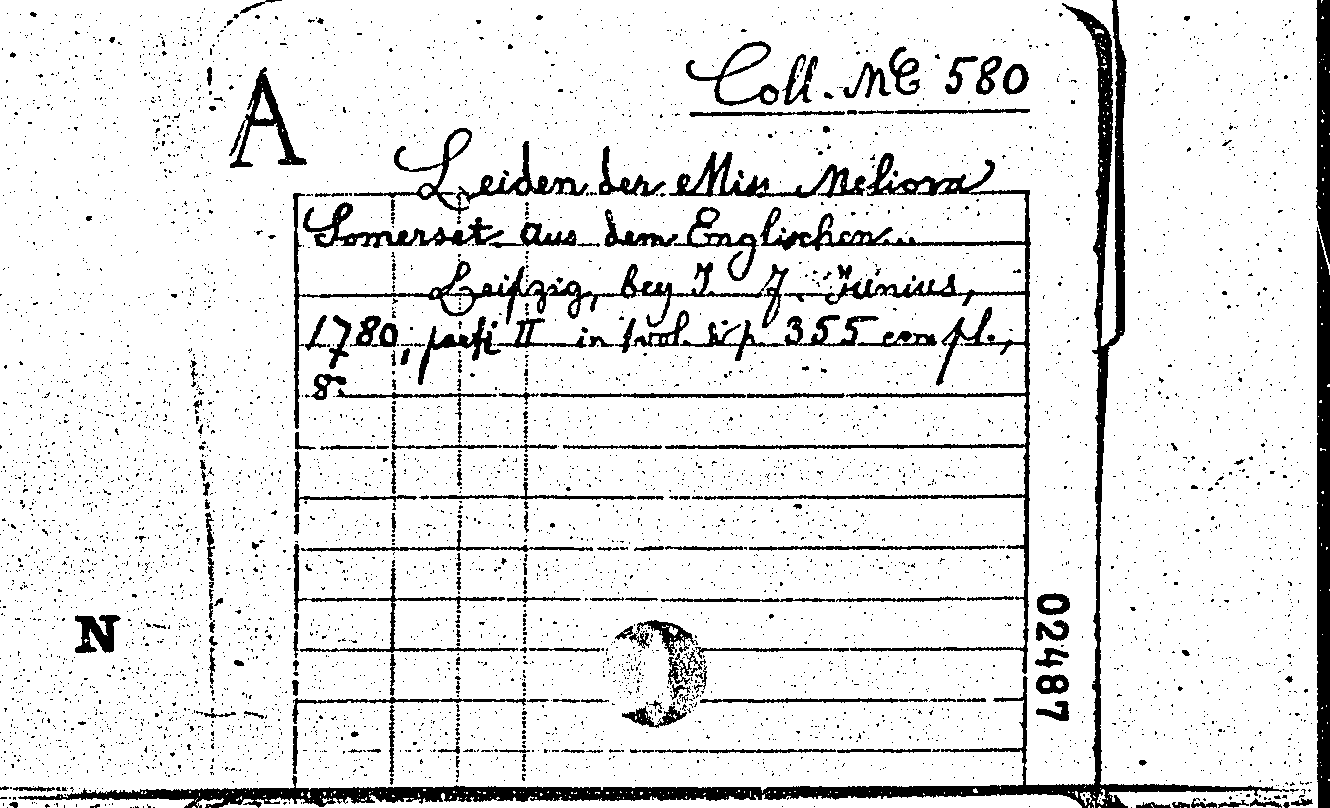 Coll. MC 580
A
Leiden der Miss Meliora
Somerset. Aus dem Englischen...
Leipzig, bey I. J. Junius,
1780, parti II in 1 vol. di p. 355 compl.,
8°.
N
02487